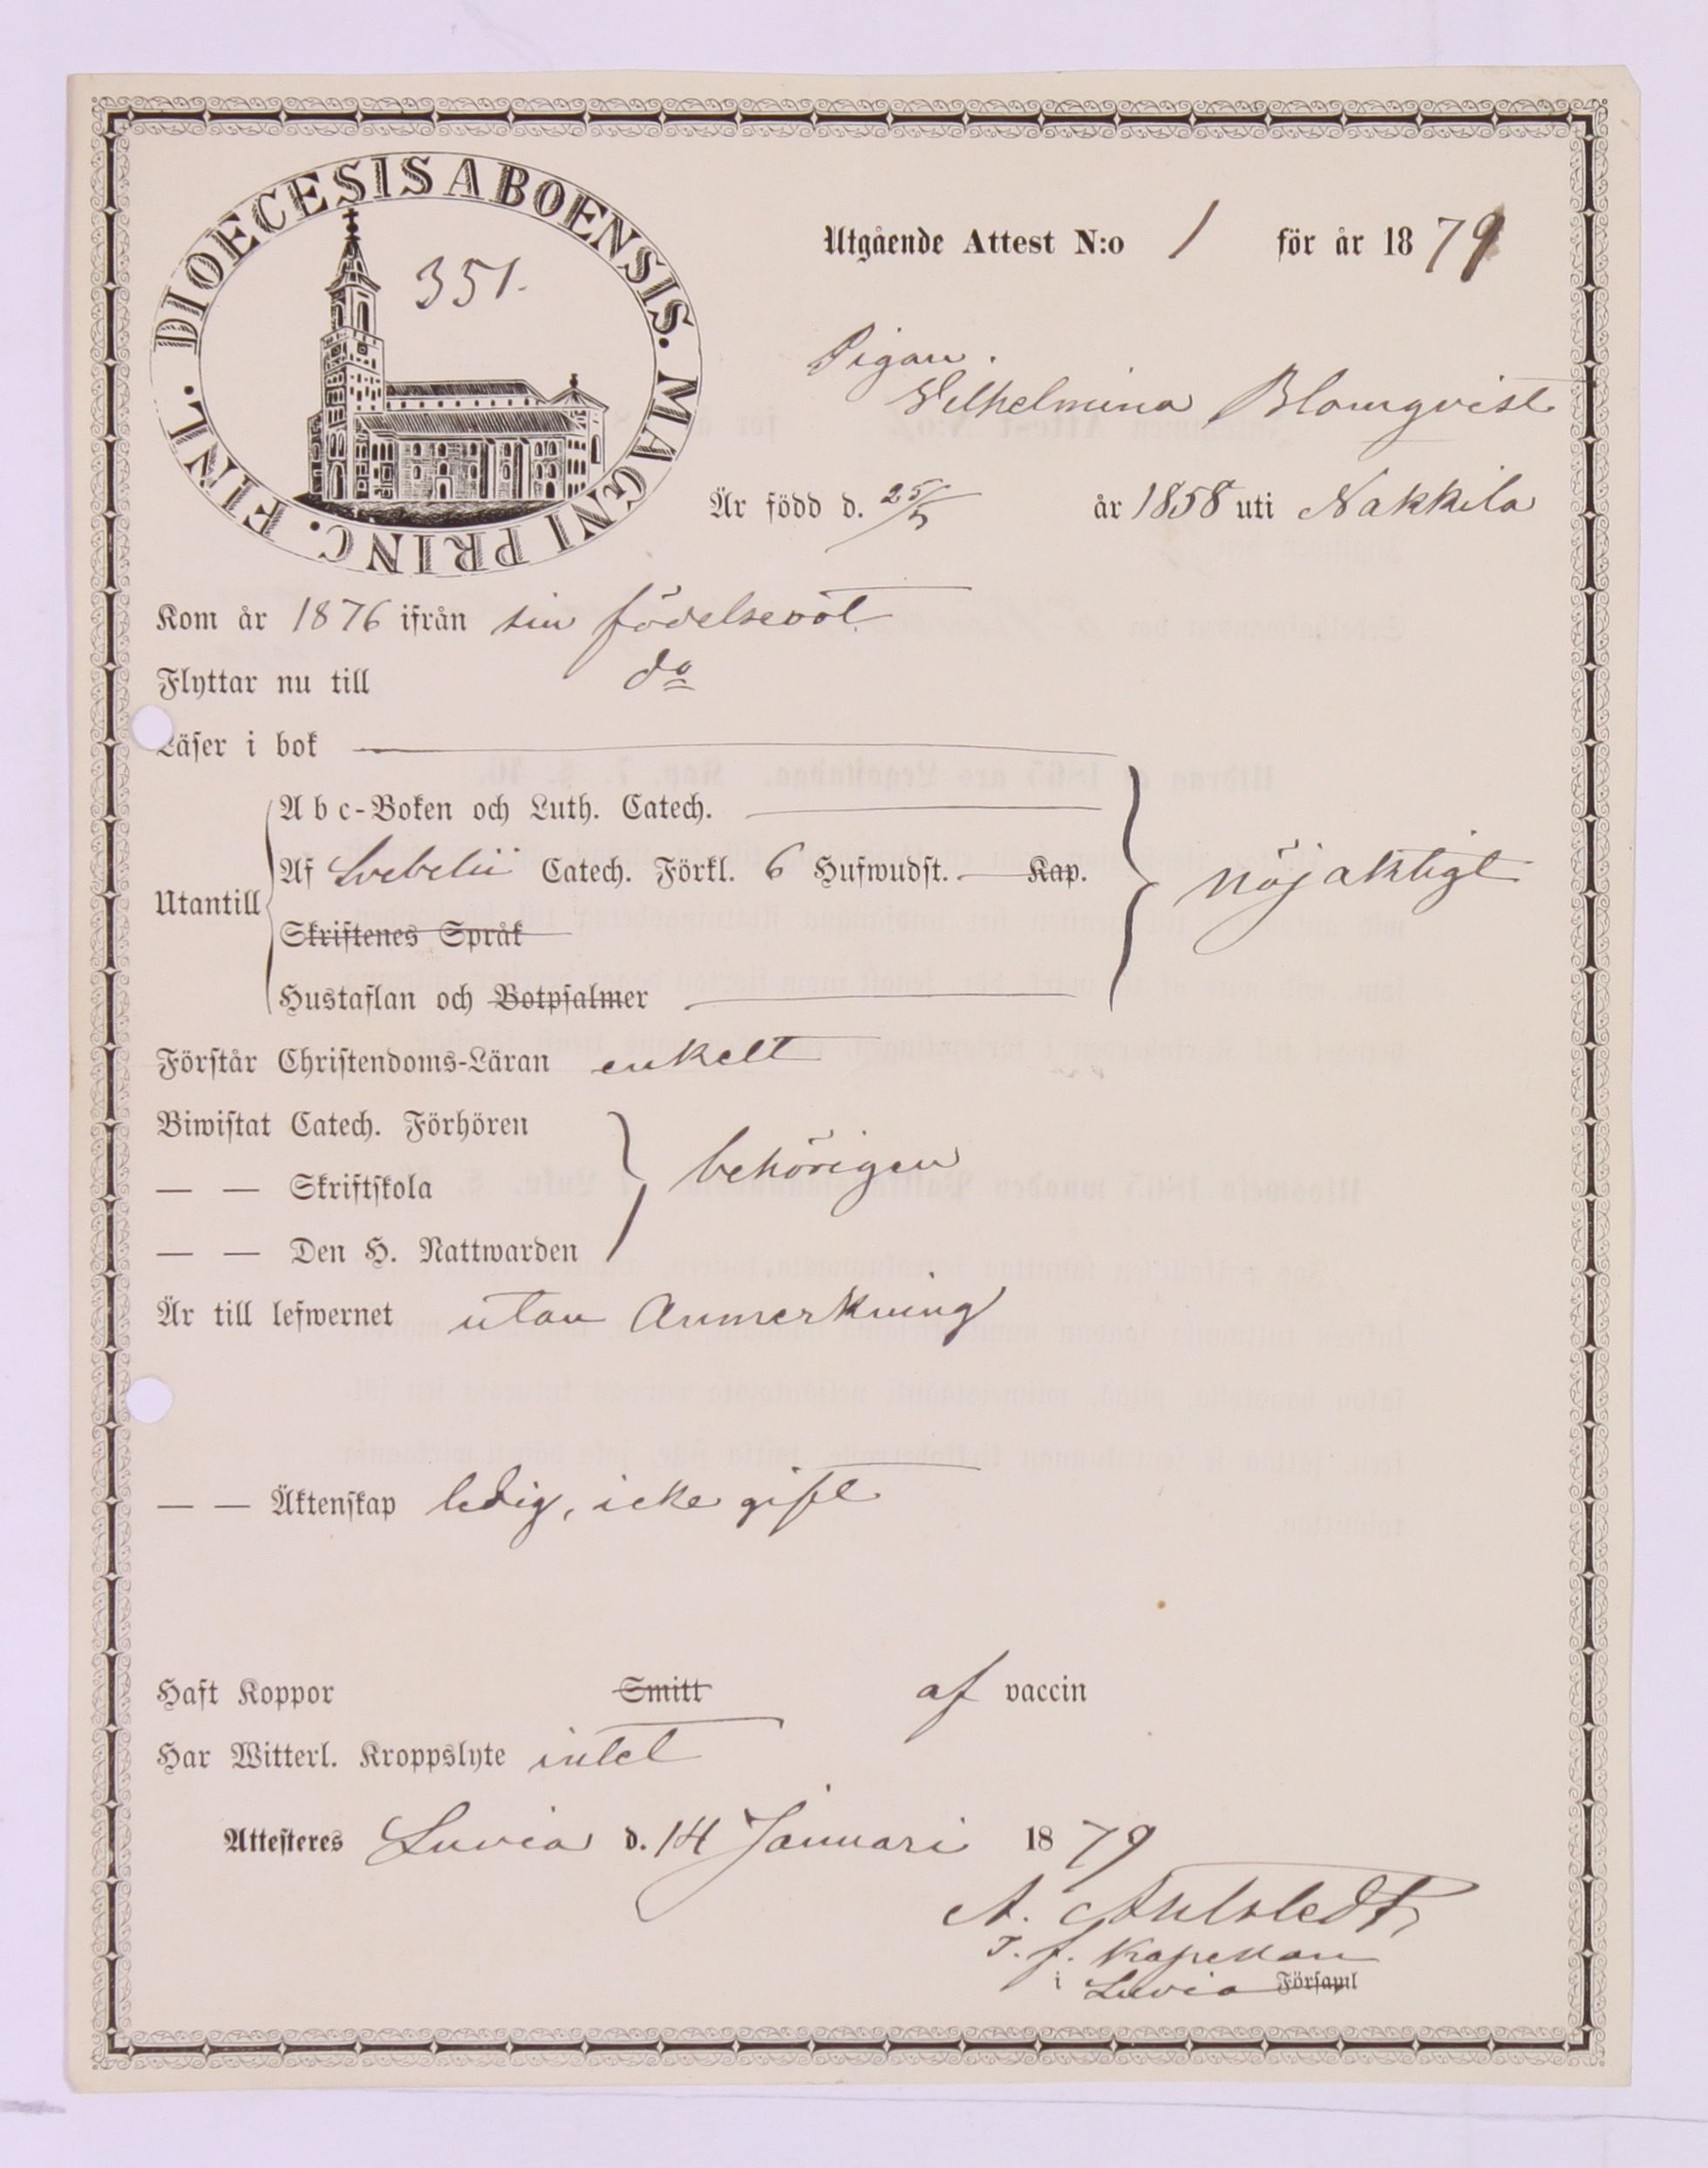 DIOECESIS ABOENSIS. MAGNI PRINC. FINL.
351.
Utgående Attest N:o 1 för år 1879
Pigan.
Vilhelmina Blomqvist
Är född d. 25/5 år 1858 uti Nakkila
Kom år 1876 ifrån sin födelseort
Flyttar nu till do
Läser i bok
Abc-Boken och Luth. Catech.
Utantill Af Svebelii Catech. Förkl. 6 Hufwudst. Kap. nöjaktigt
Skriftenes Språk
Hustaflan och Botpsalmer
Förstår Christendoms-Läran enkelt
Biwistat Catech. Förhören
— — Skriftskola behörigen
— — Den H. Nattwarden
Är till lefwernet utan Anmerkning
— — Äktenskap ledig, icke gift
Haft Koppor Smitt af vaccin
Har Witterl. Kroppslyte intet
Attesteres Luvia d. 14 Januari 1879
A. Ahlstedt,
T. f. Kapellan
i Luvia Församl